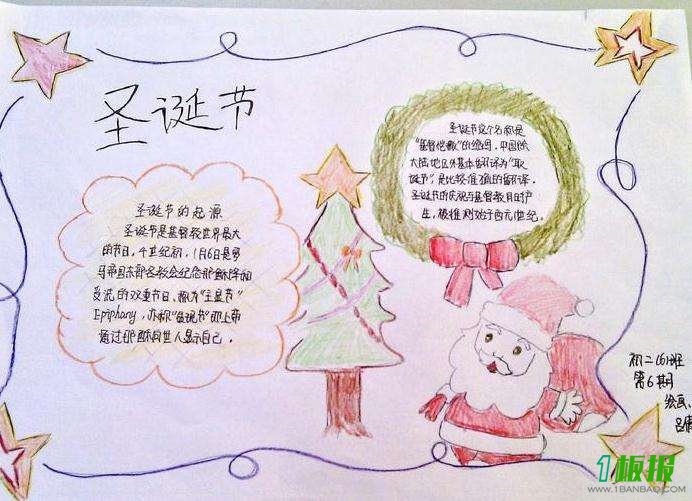 圣诞节
圣诞节的起源
圣诞节是基督教世界最大
的节日，4世纪初，1月6日是罗
马帝国东部各教会纪念耶稣降和
受洗的双重节日，称为"主显节"
Epiphany，亦称"显现节"即上帝
通过耶稣向世人显示自己。
圣诞节这个名称是
"基督弥撒"的缩写，中国
大陆地区外基本翻译为"耶
诞节"，是比较准确的翻译。
圣诞节的庆祝与基督教同时产
生，被推测始于西元1世纪。
初二(6)班
第6期
绘画：
1板报
WWW.1BANBAO.COM